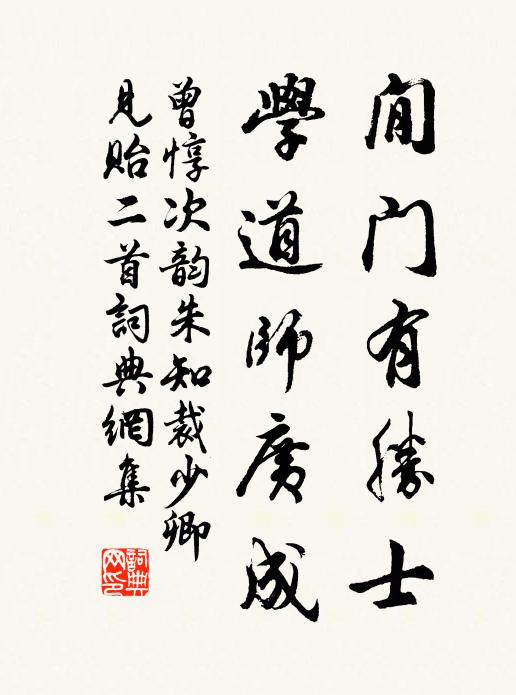 閒門有勝士
學道師廣成
曾惇次韵朱知裁少卿
見貽二首詞典網集
詞典網印